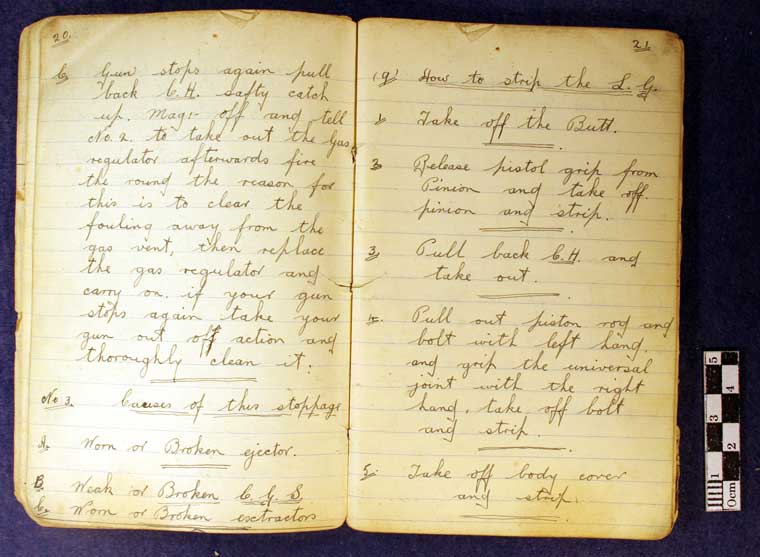 20.
C. Gun stops again pull
back C.H. Safty catch
up. Mag:- off and tell
No. 2. to take out the Gas
regulator afterwards fire
the round the reason for
this is to clear the
fouling away from the
gas vent, then replace
the gas regulator and
carry on. if your gun
stops again take your
gun out off action and
thoroughly clean it.
No 3. Causes of this stoppage
A. Worn or Broken ejector.
B. Weak or Broken C.G.S.
C. Worn or Broken exctractors
21
(g) How to strip the L.G.
1. Take off the Butt.
2. Release pistol grip from
Pinion and take off.
pinion and strip.
3. Pull back C.H. and
take out.
4. Pull out piston rod and
bolt with left hand,
and grip the universal
joint with the right
hand, take off bolt
and strip.
5. Take off body cover
and strip.
0cm 1 2 3 4 5